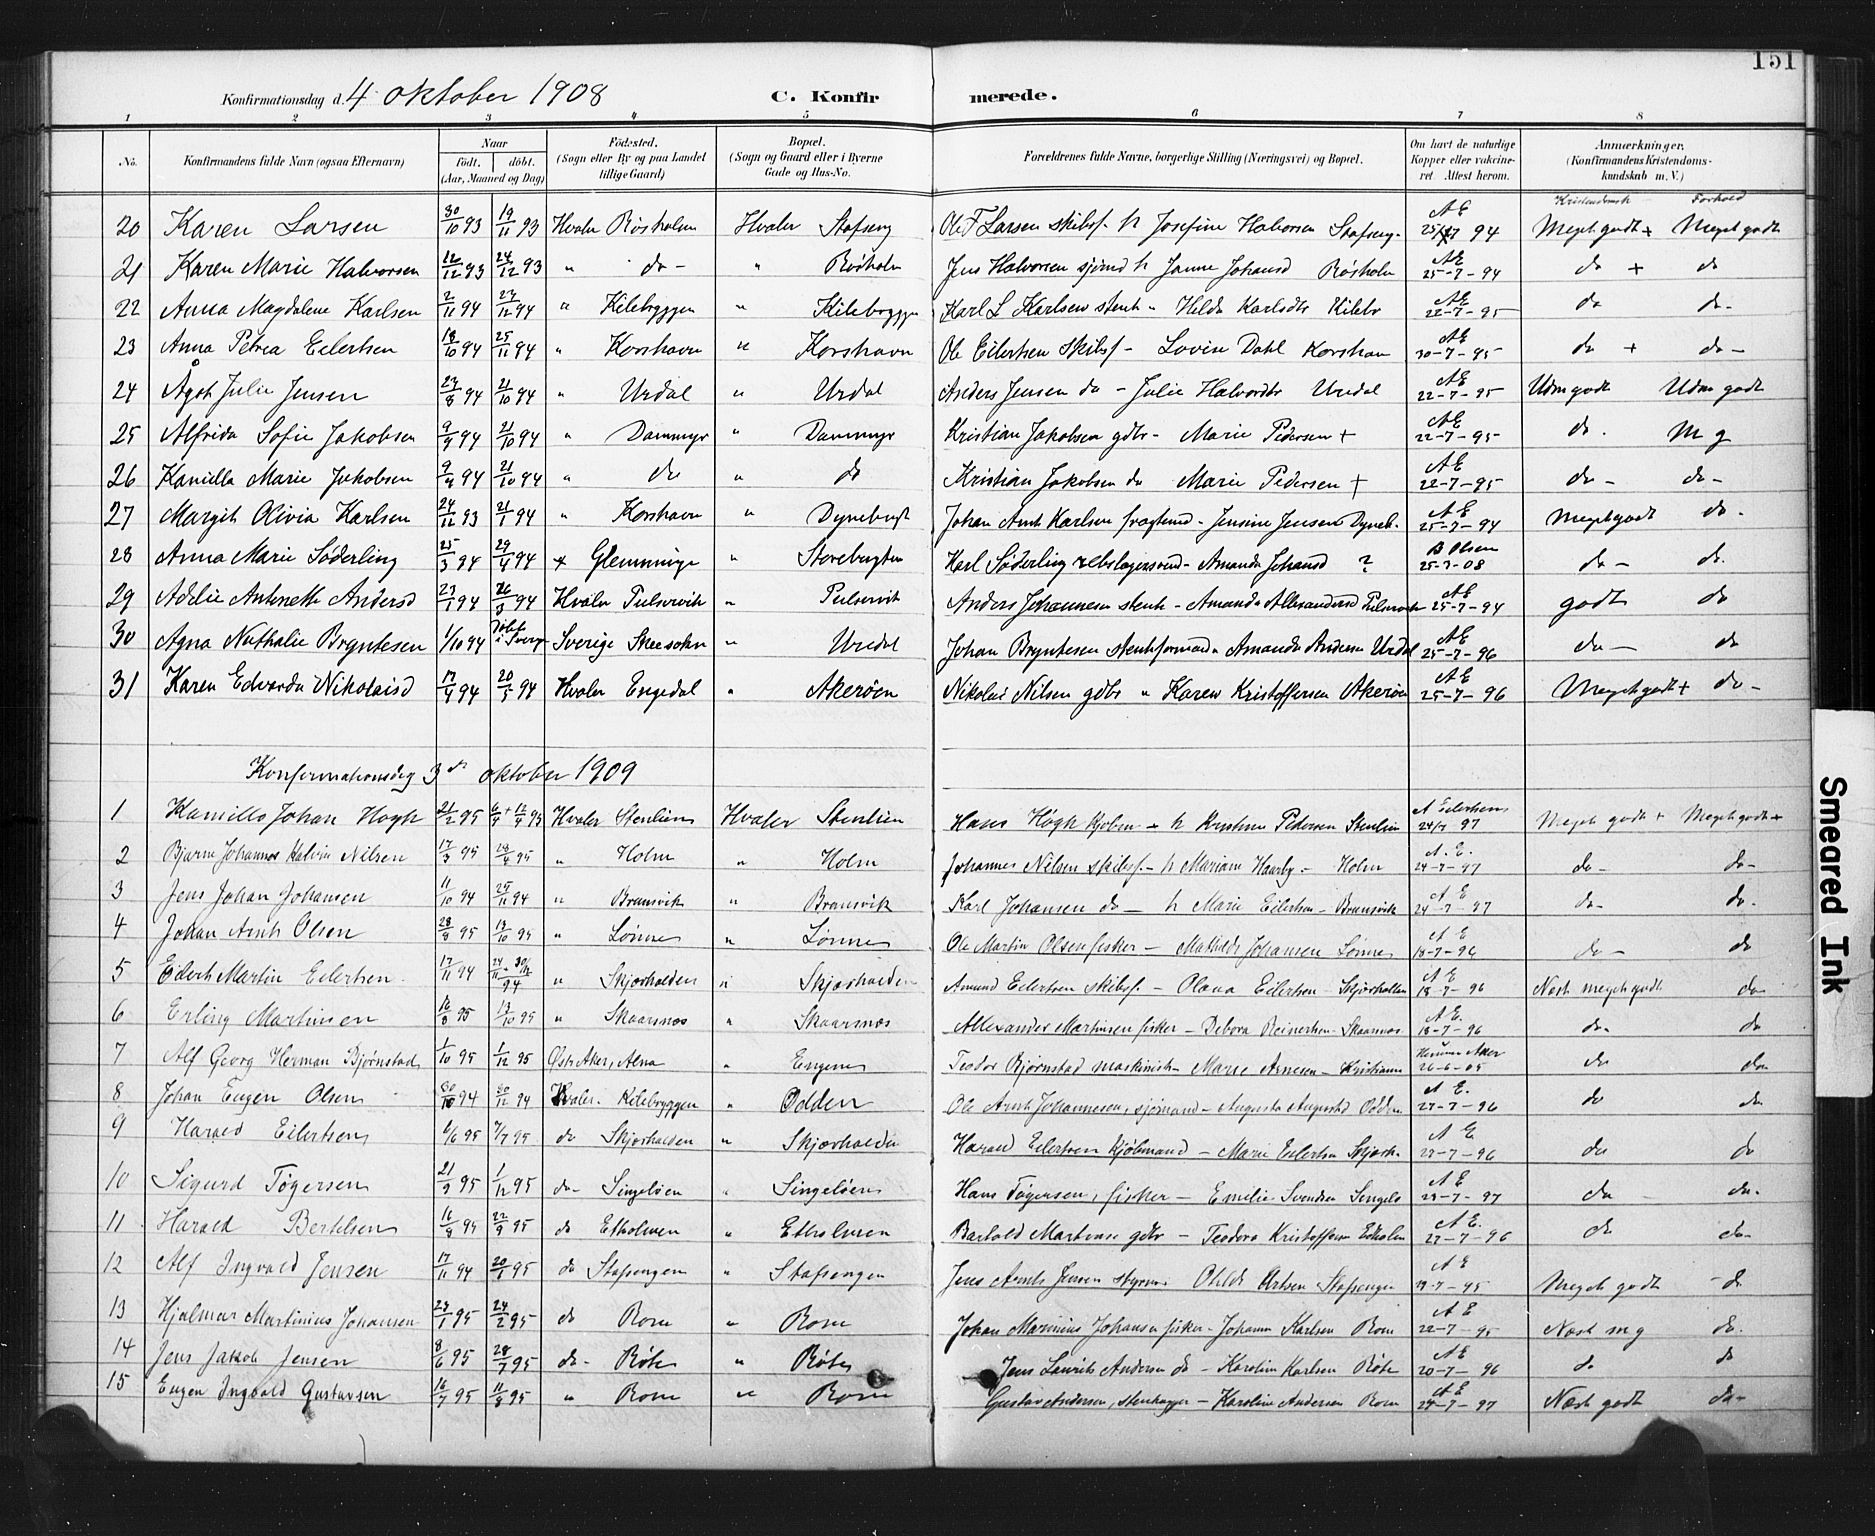 151
Konfirmationsdag d. 4 oktober 1908 C. Konfir merede.
1 2 3 4 5 6 7 8
No. Konfirmandens fulde Navn (ogsaa Efternavn) Naar født, døbt. (Aar, Maaned og Dag) Fødested. (Sogn eller By og paa Landet tillige Gaard) Bopæl. (Sogn og Gaard eller i Byerne Gade og Hus-No. Forældrenes fulde Navne, borgerlige Stilling (Næringsvei) og Bopæl. Om havt de naturlige Kopper eller vakcineret. Attest herom. Anmærkninger. (Konfirmandens Kristendomskundskab m. V.)
Kristendomsk Forhold
20 Karen Larsen 30/10 93 19/11 93 Hvaler Røsholm Hvaler Stafseng Ole F Larsen skibsf. h Josefine Halvorsen Stafseng. AE 25/7 94 Meget godt + Meget godt
21 Karen Marie Halvorsen 12/12 93 24/12 93 " do - " Rødholm Jens Halvorsen sjømd h Janne Johansd Røsholm AE 25-7-94 do + do
22 Anna Magdalene Karlsen 2/11 94 27/12 94 " Kilebryggen " Kilebrygge Karl L Karlsen stenh - Hilda Karlsdtr Kilebr AE 22-7-95 do do -
23 Anna Petrea Eilertsen 18/10 94 25/11 94 " Korshavn " Korshavn Ole Eilertsen Skibsf - Lovise Dahl Korshavn AE 30-7-95 do + do -
24 Ågot Julie Jensen 27/8 94 21/10 94 " Urdal " Urdal Anders Jensen do - Julie Halvordtr Urdal AE 22-7-95 Udm godt Udm godt
25 Alfrida Sofie Jakobsen 9/9 94 21/10 94 " Dammyr " Dammyr Kristian Jakobsen gdbr - Marie Pedersen + AE 22-7-95 do. M g
26 Kamilla Marie Jakobsen 9/9 94 21/10 94 " do " do Kristian Jakobsen do Marie Pedersen + AE 22-7-95 do - do -
27 Margit Olivia Karlsen 24/12 93 21/1 94 " Korshavn " Dynebugt Johan Arnt Karlsen fragtmd - Jensine Jensen Dyneb. AE 25-7-94 Meget godt do -
28 Anna Marie Söderling 25/3 94 29/4 94 + Glemminge " Storebugten Karl Söderling rebslagersvend - Amanda Johansd ? B Olsen 25-7-08 do - do.
29 Adelie Antonette Andersd 27/1 94 26/3 94 Hvaler Pulservik " Pulservik Anders Johannesen stenh - Amanda Allexandersd Pulservik AE 25-7-94 godt do
30 Agna Nathalie Bryntesen 1/10 94 Døbt i Sverge Sverige Skee sokn " Urdal Johan Bryntesen stenhformand - Amanda Andersen Urdal AE 25-7-96 do - do
31 Karen Edvarda Nikolaisd 17/4 94 20/5 94 Hvaler Engedal " Akerøen Nikolai Nilsen gdbr " Karen Kristoffersen Akerøen AE 25-7-96 Meget godt + do -
Konfirmationsdag 3d oktober 1909
1 Kamillo Johan Høgh 21/2 95 Hvaler Stenlien Hvaler Stenlien Hans Høgh Kjøbm - h Kristine Pedersen Stenlien A Eilertsen 24/7 97 Meget godt + Meget godt +
2 Bjarne Johannes Kalvin Nilsen 17/3 95 28/4 95 " Holm " Holm Johannes Nilsen skibsf. - h Mariane Haarby - Holm A. E. 24-7-97 do - do -
3 Jens Johan Johansen 11/10 94 25/11 94 " Bransvik " Bransvik Karl Johansen do - h Marie Eilertsen - Bransvik A E 24-7-97 do - do -
4 Johan Arnt Olsen 28/8 95 13/10 95 " Lønne " Lønne Ole Martin Olsen fisker - Mathilde Johansen Lønne A E 18-7-96 do - do
5 Eilert Martin Eilertsen 17/11 94 " Skjærholden " Skjærholden Amund Eilertsen skibsf. - Olava Eilertsen - Skjærhallen A E 18-7-96 Næst meget godt do
6 Erling Martinsen 16/8 95 13/10 95 " Skaarsnes " Skaarsnes Allexander Martinsen fisker - Debora Reinertsen - Skaarsnes A E. 18-7-96 do - do
7 Alf Georg Herman Bjørnstad 1/10 95 1/12 95 Østr. Aker, Alna " Engene Teodor Bjørnstad maskinist - Marie Arnesen - Kristiania 26-6-05 do do
8 Johan Eugen Olsen 30/10 94 30/12 94 Hvaler. Kilebryggen " Odden Ole Arnt Johannesen, sjømand - Augusta Augustsd Odden A E. 27-7-96 do do
9 Harald Eilertsen 6/6 95 7/7 95 do Skjærholden " Skjærholden Harald Eilertsen Kjøbmand - Marie Eilertsen Skjærh. A E 27-7-96 do do
10 Sigurd Tøgersen 21/9 95 1/12 95 do - Singeløen " Singeløen Hans Tøgersen, fisker - Emilie Svendsen Singelø A E 29-7-97 do do.
11 Harald Bertelsen 16/8 95 22/9 95 do Etholmen " Etholmen Bartold Martinsen gdbr - Teodora Kristoffersen Edholm A E. 27-7-96 do do -
12 Alf Ingvald Jensen 17/11 94 20/1 95 do Stafsengen " Stafsengen Jens Arnt Jensen styrm - Othilde Karlsen Stafsengen A E 29-7-95 Meget godt - do
13 Hjalmar Martinius Johansen 23/1 95 24/2 95 do Rom " Rom Johan Marinius Johansen fisker - Johanne Karlsen Rom A E 22-7-95 Næst mg do.
14 Jens Jakob Jensen 8/6 95 28/7 95 do - Røte " Røte Jens Laurits Andersen do - Karoline Karlsen Røte AE 20-7-96 do do
15 Eugen Ingvald Gustavsen 16/7 95 11/8 95 " Rom " Rom Gustav Andersen, stenhugger - Karoline Andersen Rom AE 24-7-97 Næst godt do -
Smeared Ink